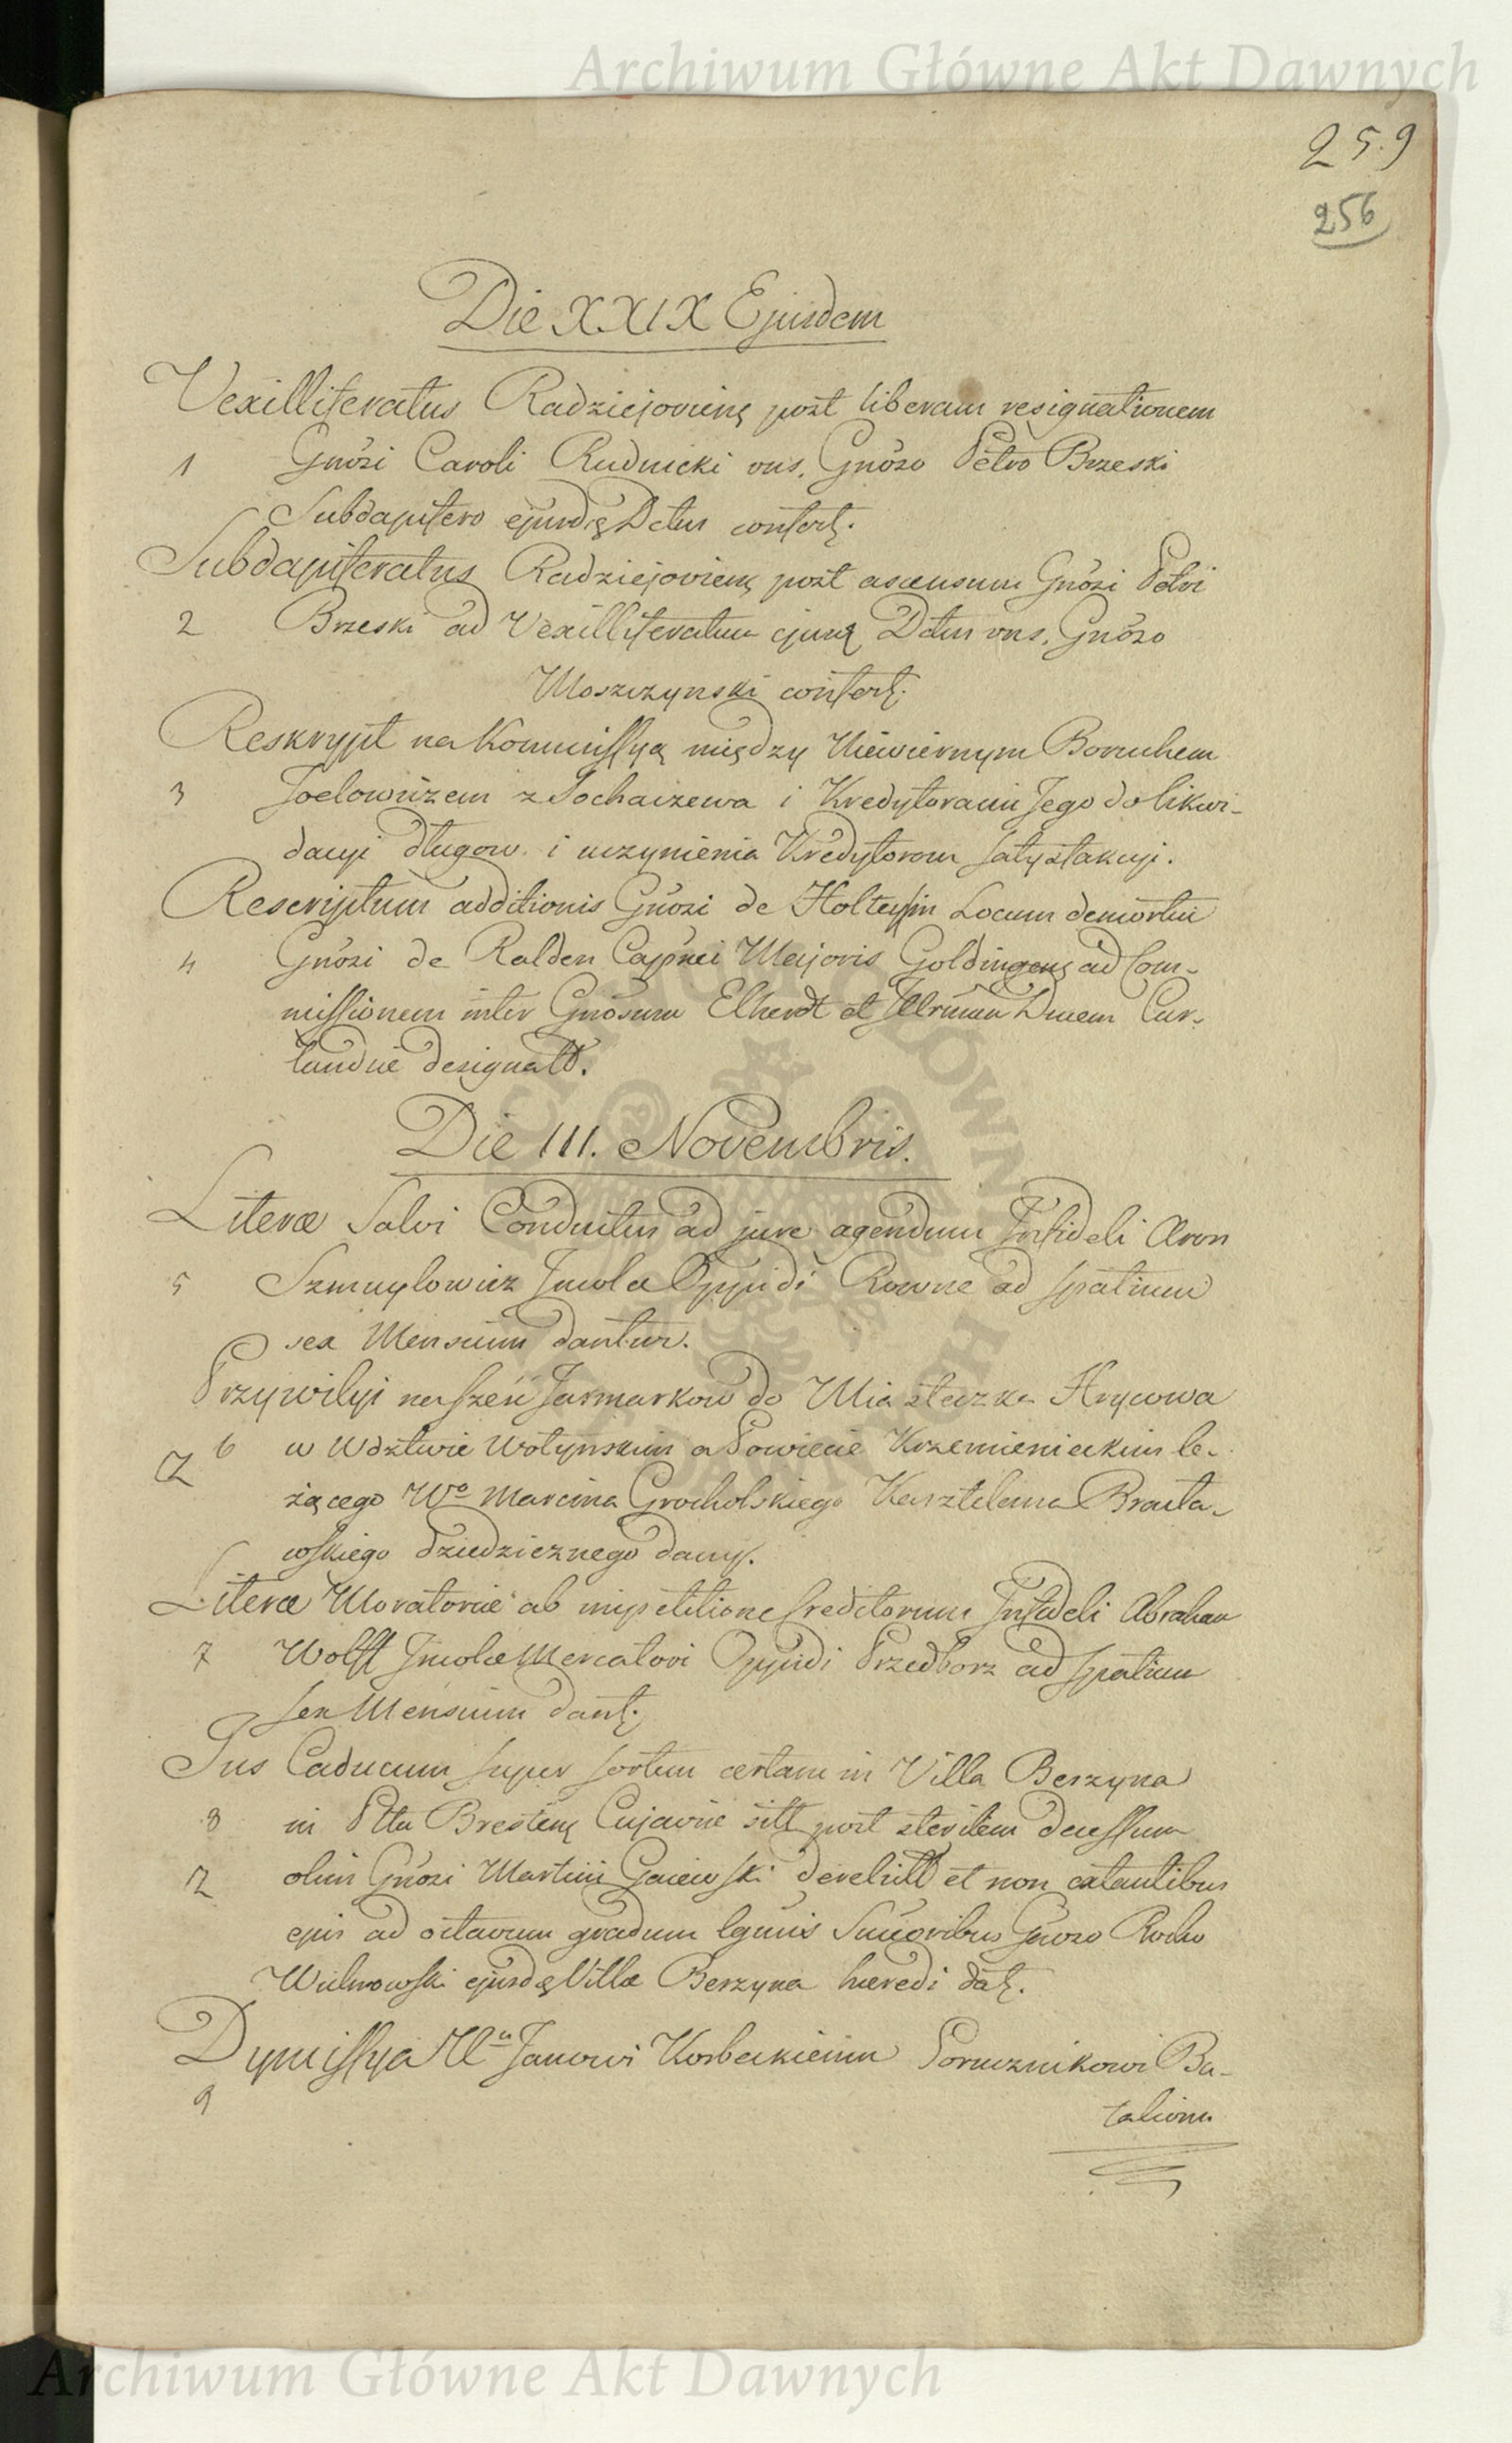 Archiwum Główne Akt Dawnych
259
256
Die XXIX Ejusdem
Vexilliferatus Radziejoviens post liberam resignationem
1 Gnosi Caroli Rudnicki vns. Gnoso Petro Brzeski
Subdapifero ejusd Dctus confert.
Subdapiferatus Radziejoviens post ascensum Gnosi Petri
2 Brzeski ad Vexilliferatum ejusd Dctus vns. Gnoso
Moszczynski confert.
Reskrypt na Kommissyą między Niewiernym Boruchem
3 Joelowiczem z Sochaczewa i Kredytorami Jego do likwi-
dacyi długow i uczynienia Kredytorom satysfakcyi.
Rescriptum additionis Gnosi de Holtey in Locum demortui
4 Gnosi de Ralden Capnei Majoris Goldingens ad Com-
missionem inter Gnosum Elherdt et Illrumum Ducem Cur-
landiæ designatt.
Die III. Novembris.
Literæ Salvi Conductus ad jure agendum Infideli Aron
5 Szmuylowicz Incolæ Oppidi Rowne ad spatium
sex Mensium dantur.
Przywilyi na sześć Jarmarkow do Miasteczka Hrycowa
6 w Wdztwie Wołynskim a Powiecie Krzemienieckim le-
żącego We Marcina Grocholskiego Kasztelana Bracła-
wskiego dziedzicznego dany.
Literæ Moratoriæ ab impetitione Creditorum Infideli Abraham
7 Wolff Incolæ Mercatori Oppidi Przedborz ad spatium
sex Mensium dant.
Jus Caducum super sortem certam in Villa Berzyna
8 in Pttu Brestens Cujaviæ sitt post sterilem decessum
olim Gnosi Martini Gaiewski derelictt et non extantibus
ejus ad octavum gradum lgmis Succoribus Gnoso Rocho
Wichrowski ejusd Villæ Berzyna hæredi dat.
Dymissya Ur Janowi Korbeckiemu Porucznikowi Ba-
9
talionu
Archiwum Główne Akt Dawnych